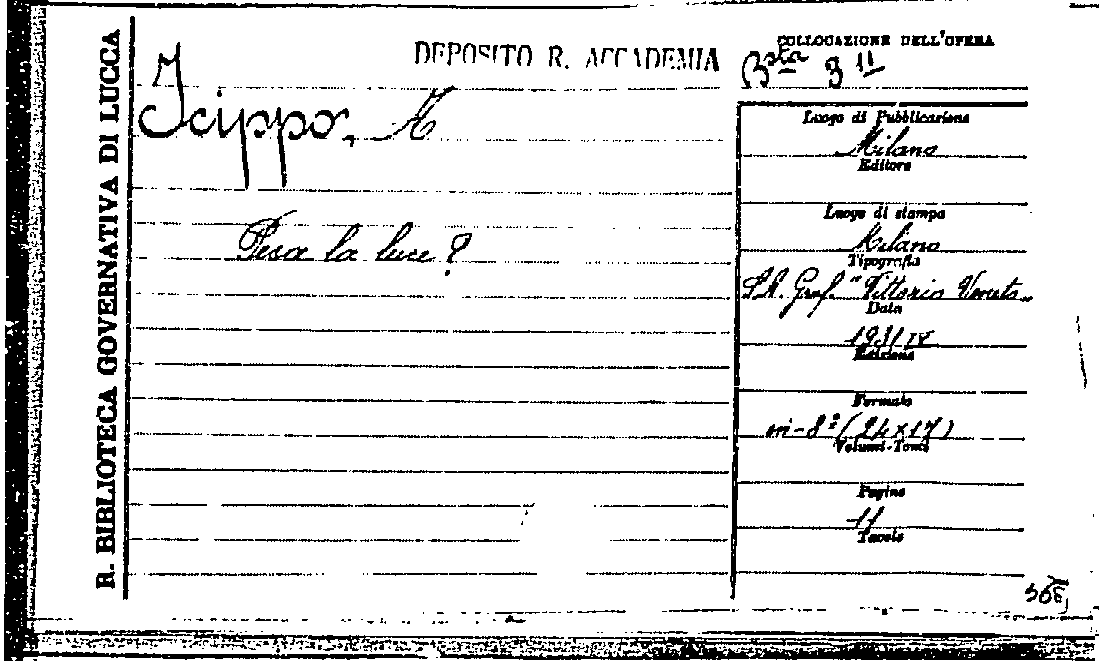 R. BIBLIOTECA GOVERNATIVA DI LUCCA
DEPOSITO R. ACCADEMIA
COLLOCAZIONE DELL'OPERA
Bsta 3 11
Scippo, A
Pesa la luce?
Luogo di Pubblicazione
Milano
Editore
Luogo di stampa
Milano
Tipografia
S.A. Graf. "Vittorio Veneto"
Data
1931/IX
Edizione
Formato
in-8º (24x17)
Volumi-Tomi
Pagine
11
Tavole